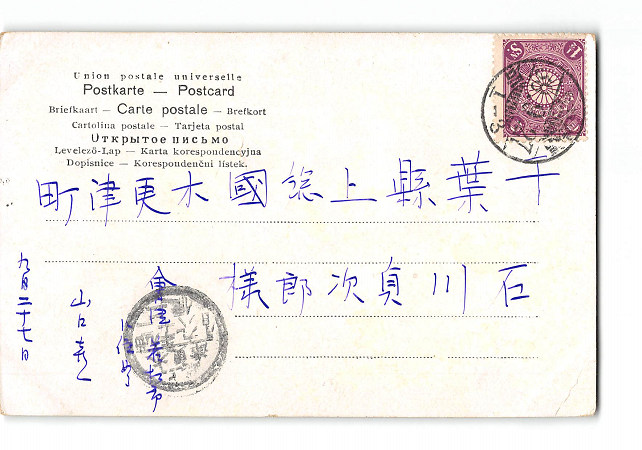 Union postale universelle
Postkarte — Postcard
Briefkaart — Carte postale — Brefkort
Cartolina postale — Tarjeta postal
Открытое письмо
Levelező-Lap — Karta korespondencyjna
Dopisnice — Korespondenční lístek.
千葉縣上総國木更津町
石川貞次郎様
會津若松市
山口
九月二十七日